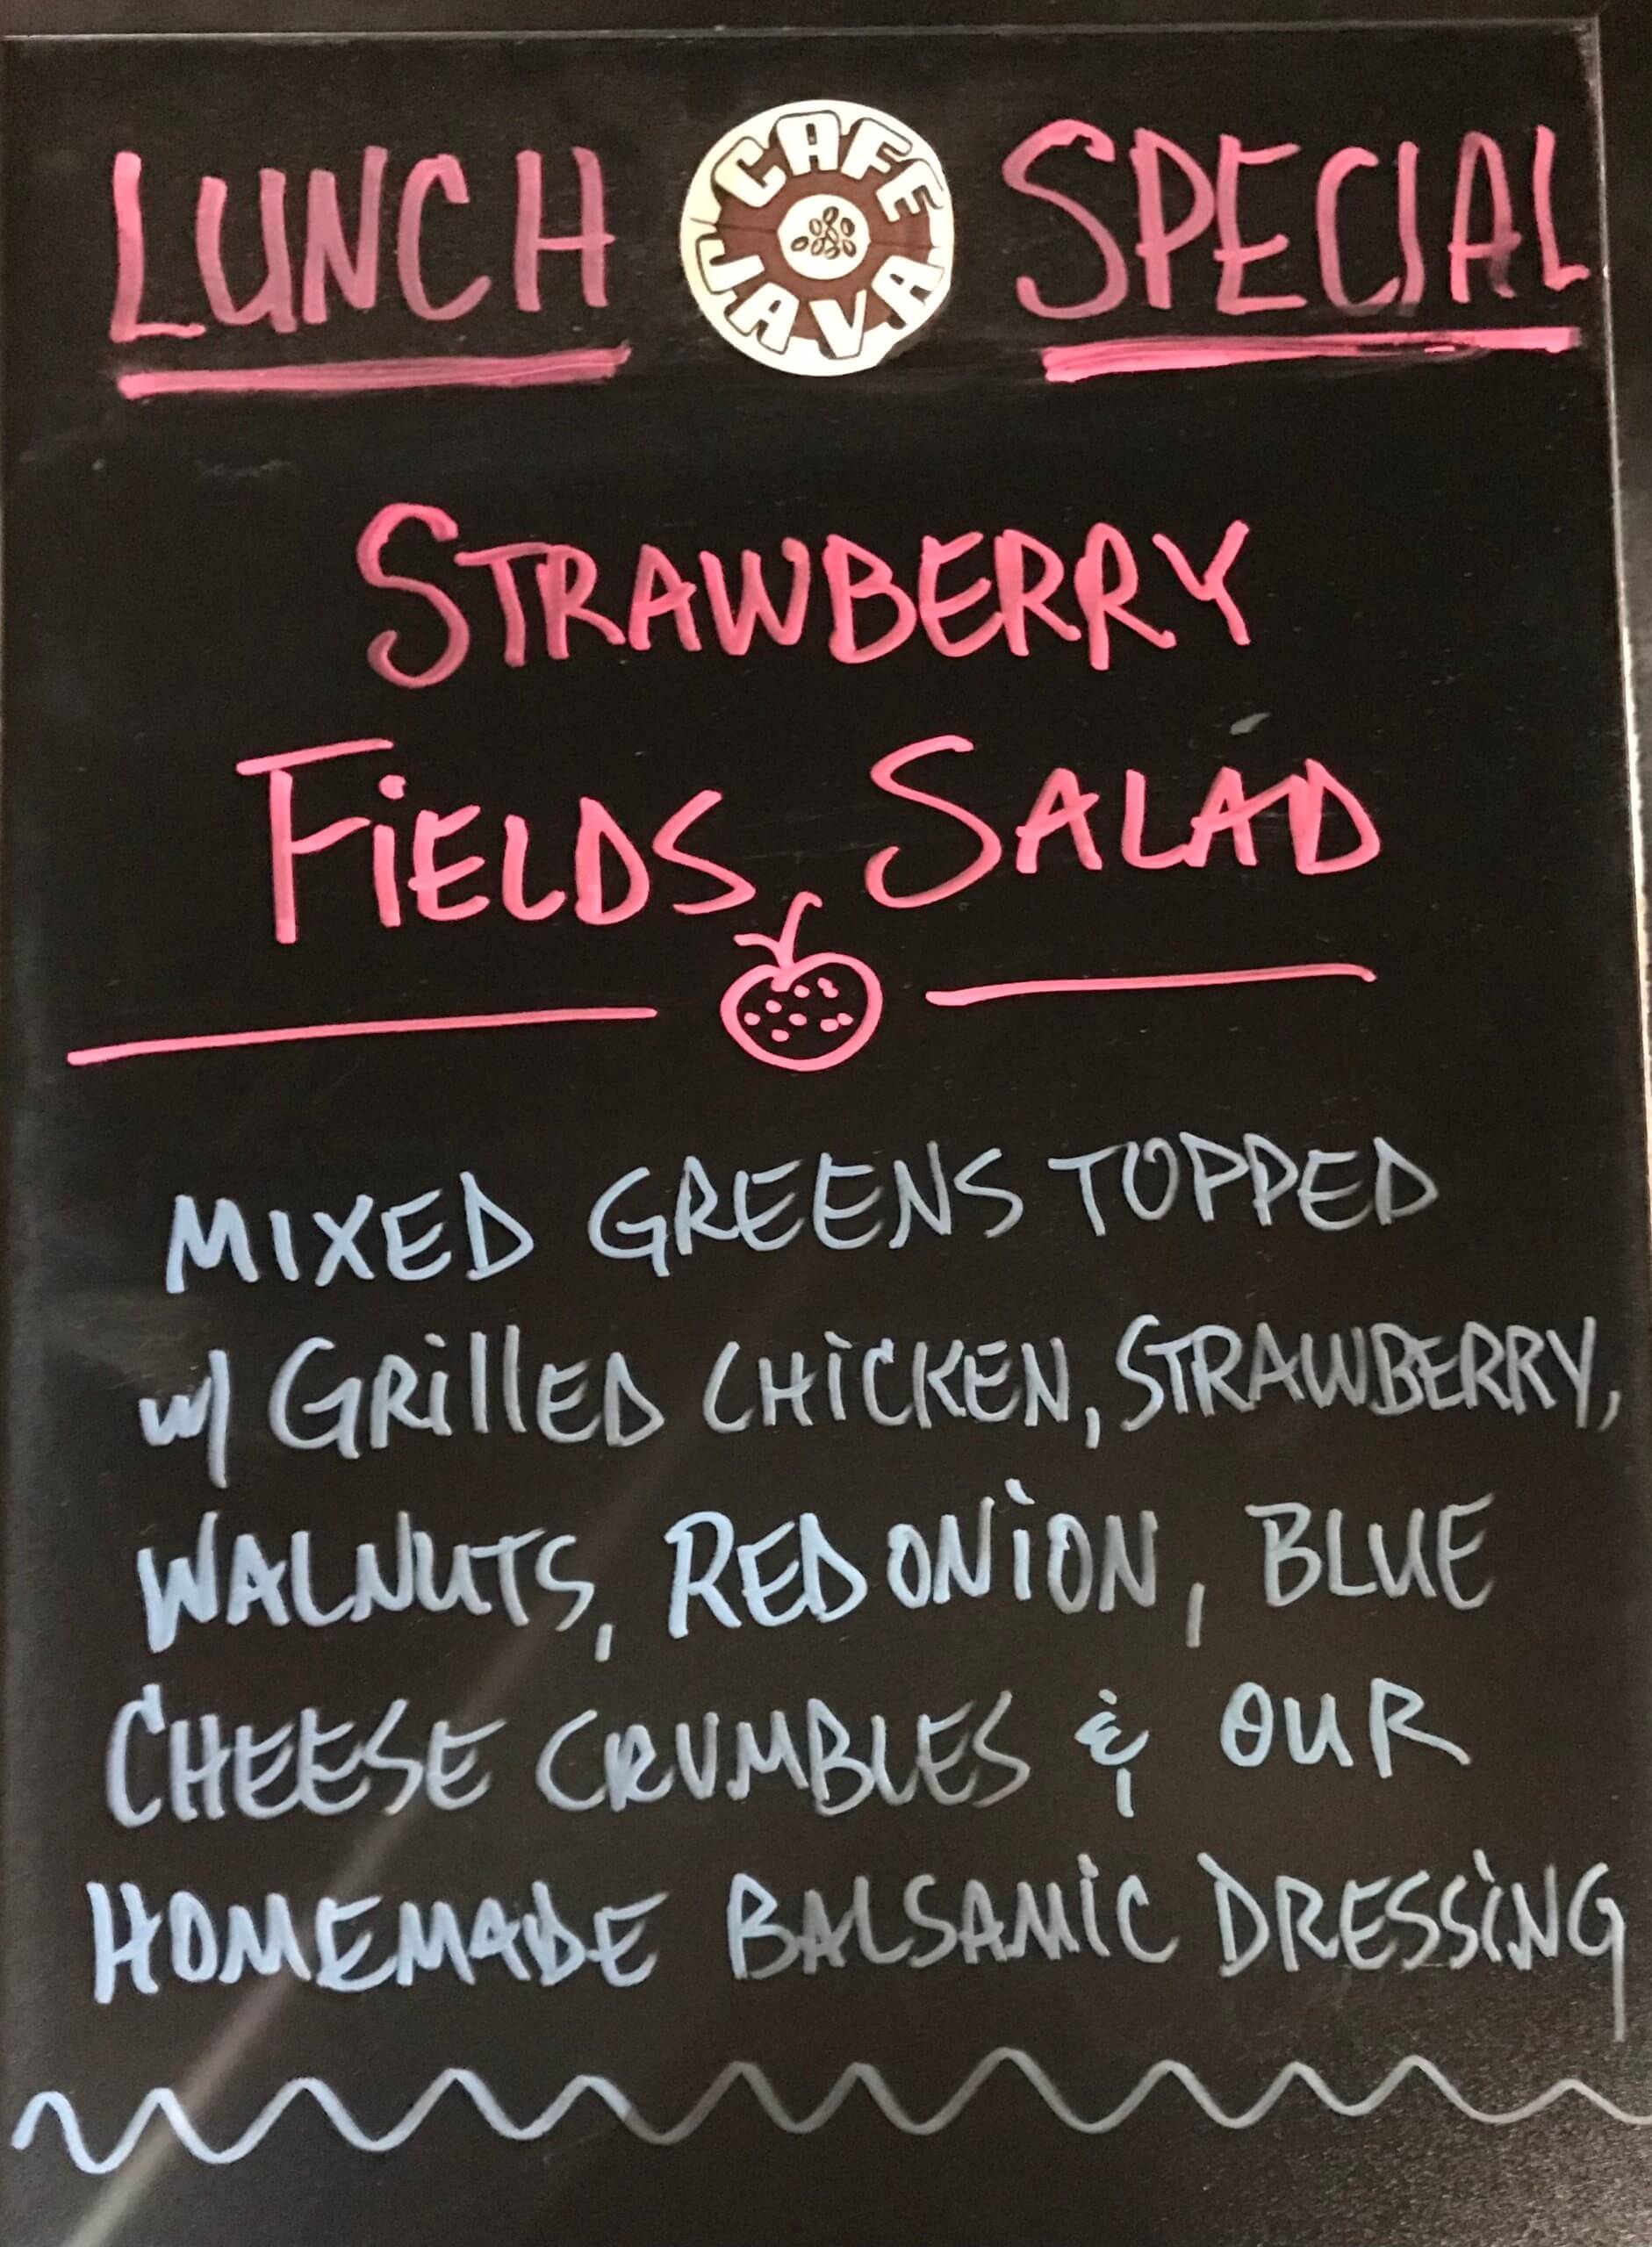 LUNCH CAFE JAVA SPECIAL
STRAWBERRY
FiELDS SALAD
MIXED GREENS TOPPED
w/ GRillED CHiCKEN, STRAWBERRY,
WALNUTS, RED ONiON, BLUE
CHEESE CRUMBLES & OUR
HOMEMADE BALSAMiC DRESSiNG